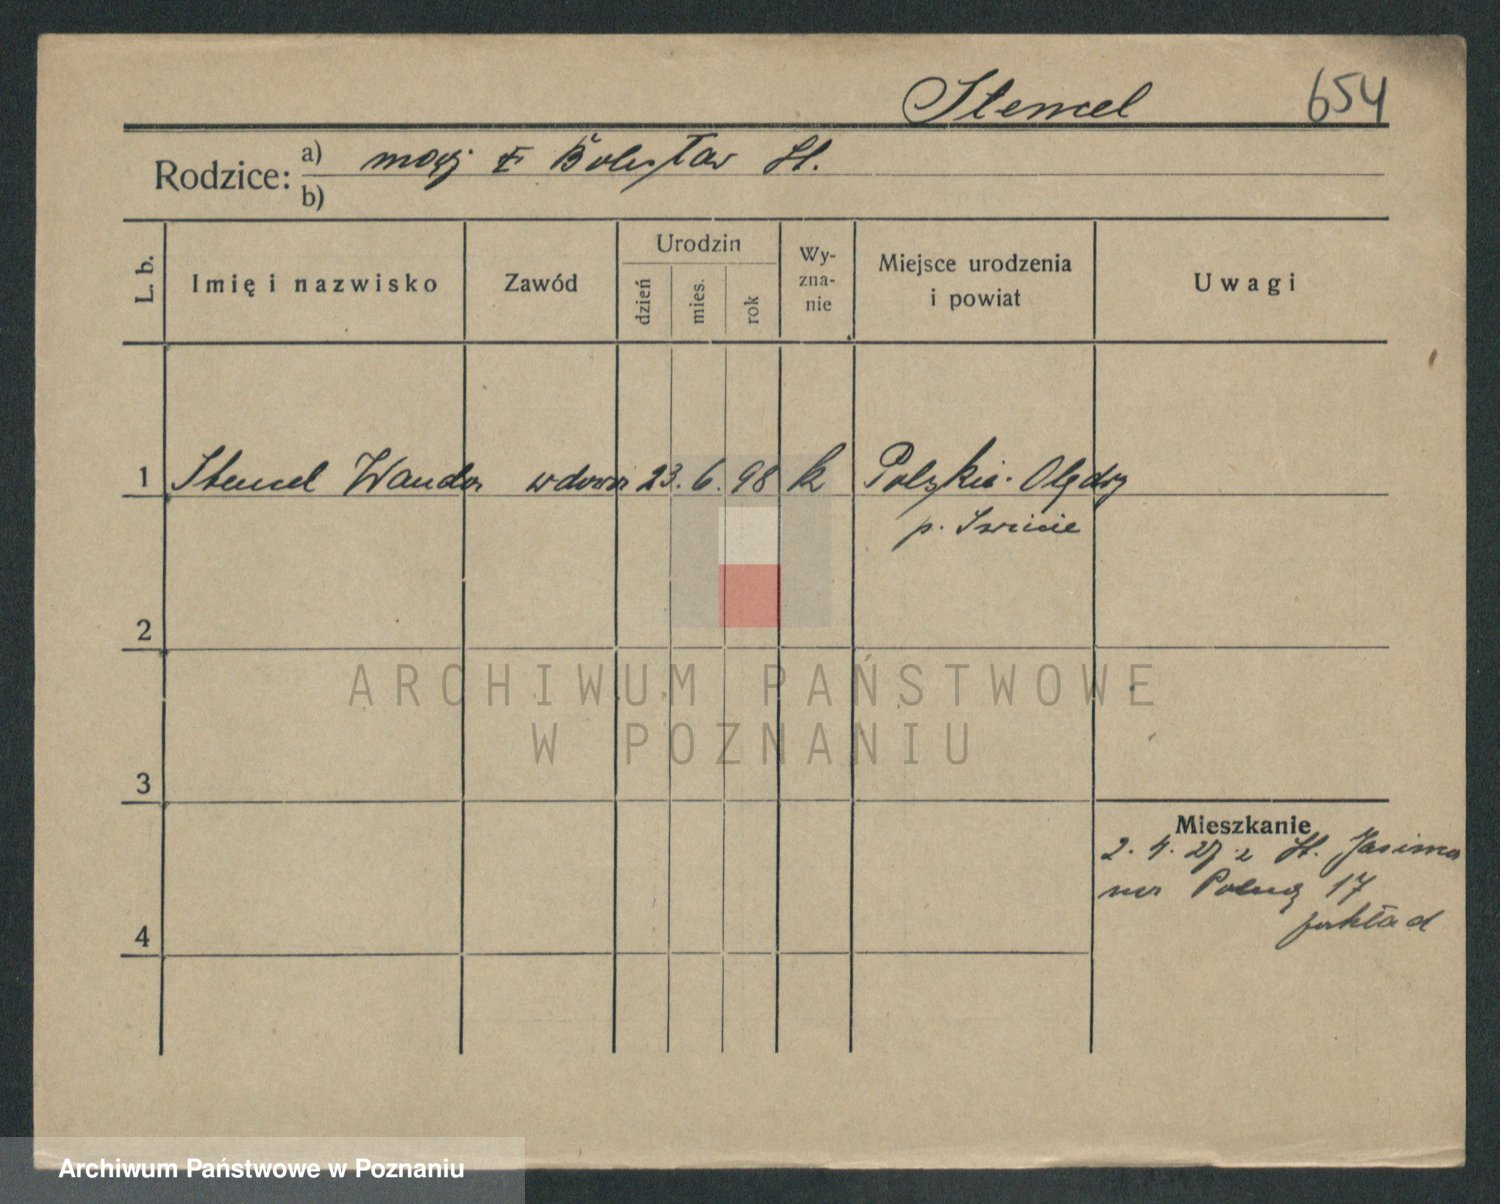 Stencel 654
Rodzice: a) mąż ✝ Bolesław St.
b)
L. b. Imię i nazwisko Zawód Urodzin dzień mies. rok Wy-zna-nie Miejsce urodzenia i powiat Uwagi
1 Stencel Wanda wdowa 23. 6. 98 k Polskie Olędry
p. Świecie
2
3
4
Mieszkanie
2. 4. 27 z St.
na Polną 17
ARCHIWUM PAŃSTWOWE
W POZNANIU
Archiwum Państwowe w Poznaniu